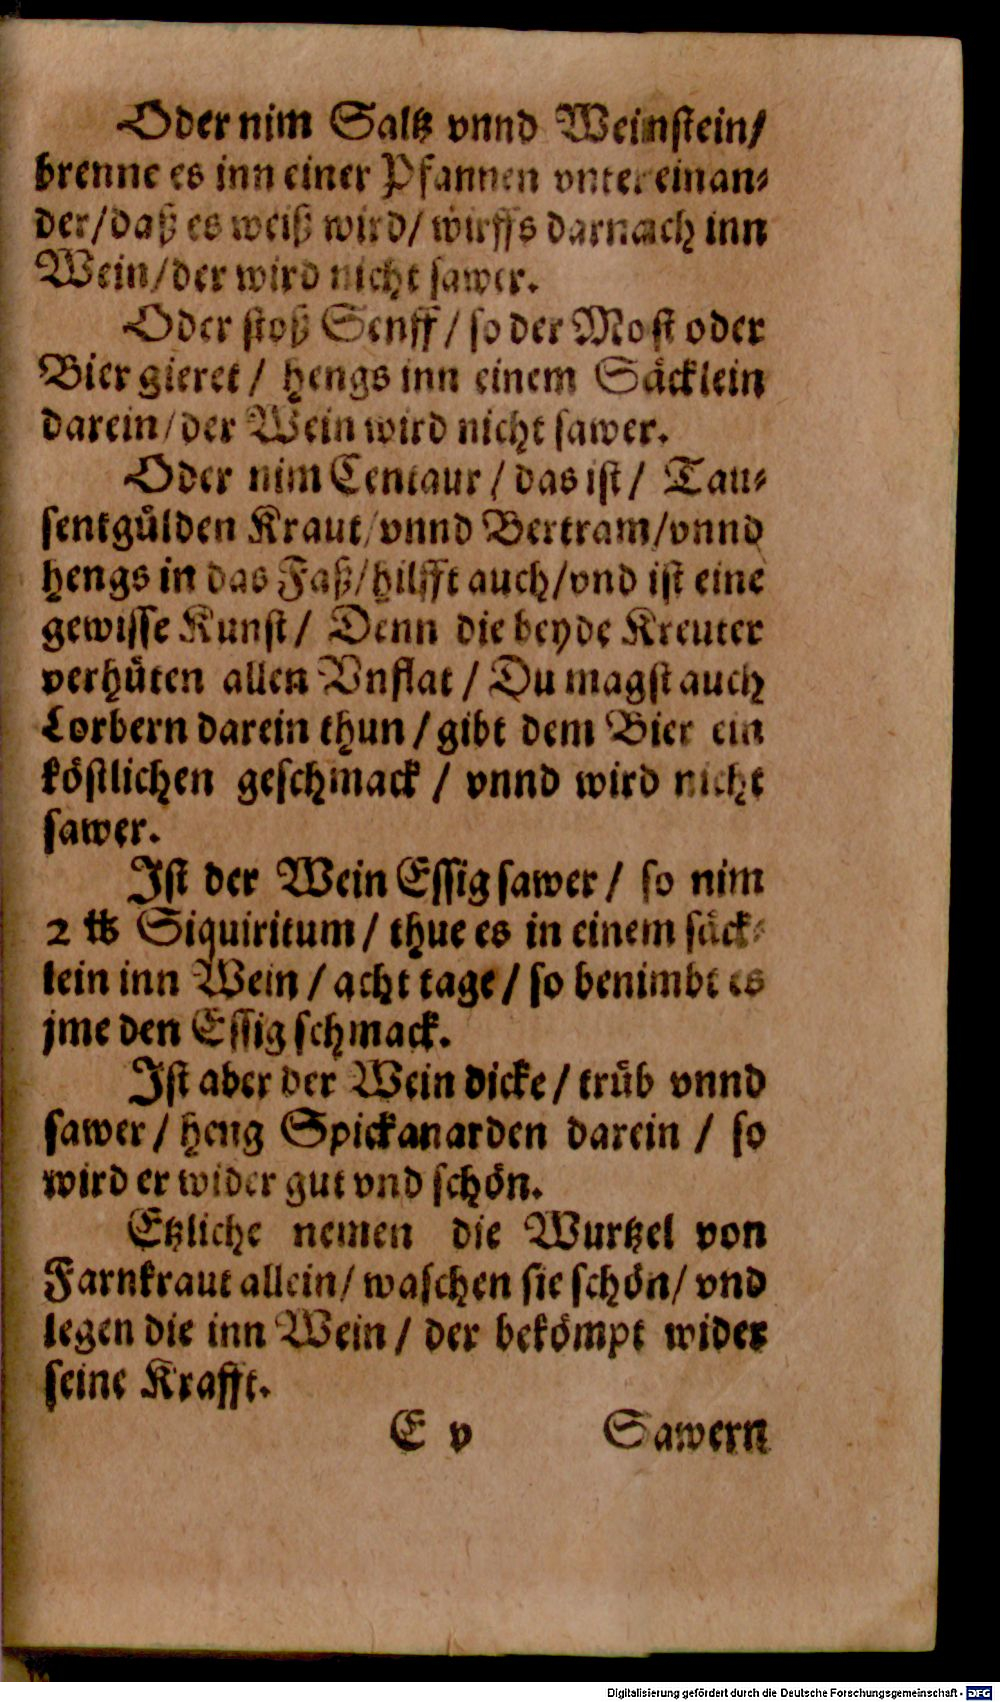 Oder nim Saltz vnnd Weinstein/
brenne es inn einer Pfannen vnter einan⸗
der/daß es weiß wird/ wirffs darnach inn
Wein/der wird nicht sawer.
Oder stoß Senff/ so der Most oder
Bier gieret/ hengs inn einem Säcklein
darein/der Wein wird nicht sawer.
Oder nim Centaur/ das ist/ Tau⸗
sentgülden Kraut/vnnd Bertram/vnnd
hengs in das Faß/hilfft auch/vnd ist eine
gewisse Kunst/ Denn die beyde Kreuter
verhüten allen Vnflat/ Du magst auch
Lorbern darein thun/ gibt dem Bier ein
köstlichen geschmack/ vnnd wird nicht
sawer.
Ist der Wein Essig sawer/ so nim
2 ℔ Siquiritum/ thue es in einem säck⸗
lein inn Wein/ acht tage/ so benimbt es
jme den Essig schmack.
Ist aber der Wein dicke/ trüb vnnd
sawer/ heng Spickanarden darein/ so
wird er wider gut vnd schön.
Etzliche nemen die Wurtzel von
Farnkraut allein/ waschen sie schön/ vnd
legen die inn Wein/ der bekömpt wider
seine Krafft.
E v Sawern
Digitalisierung gefördert durch die Deutsche Forschungsgemeinschaft - DFG